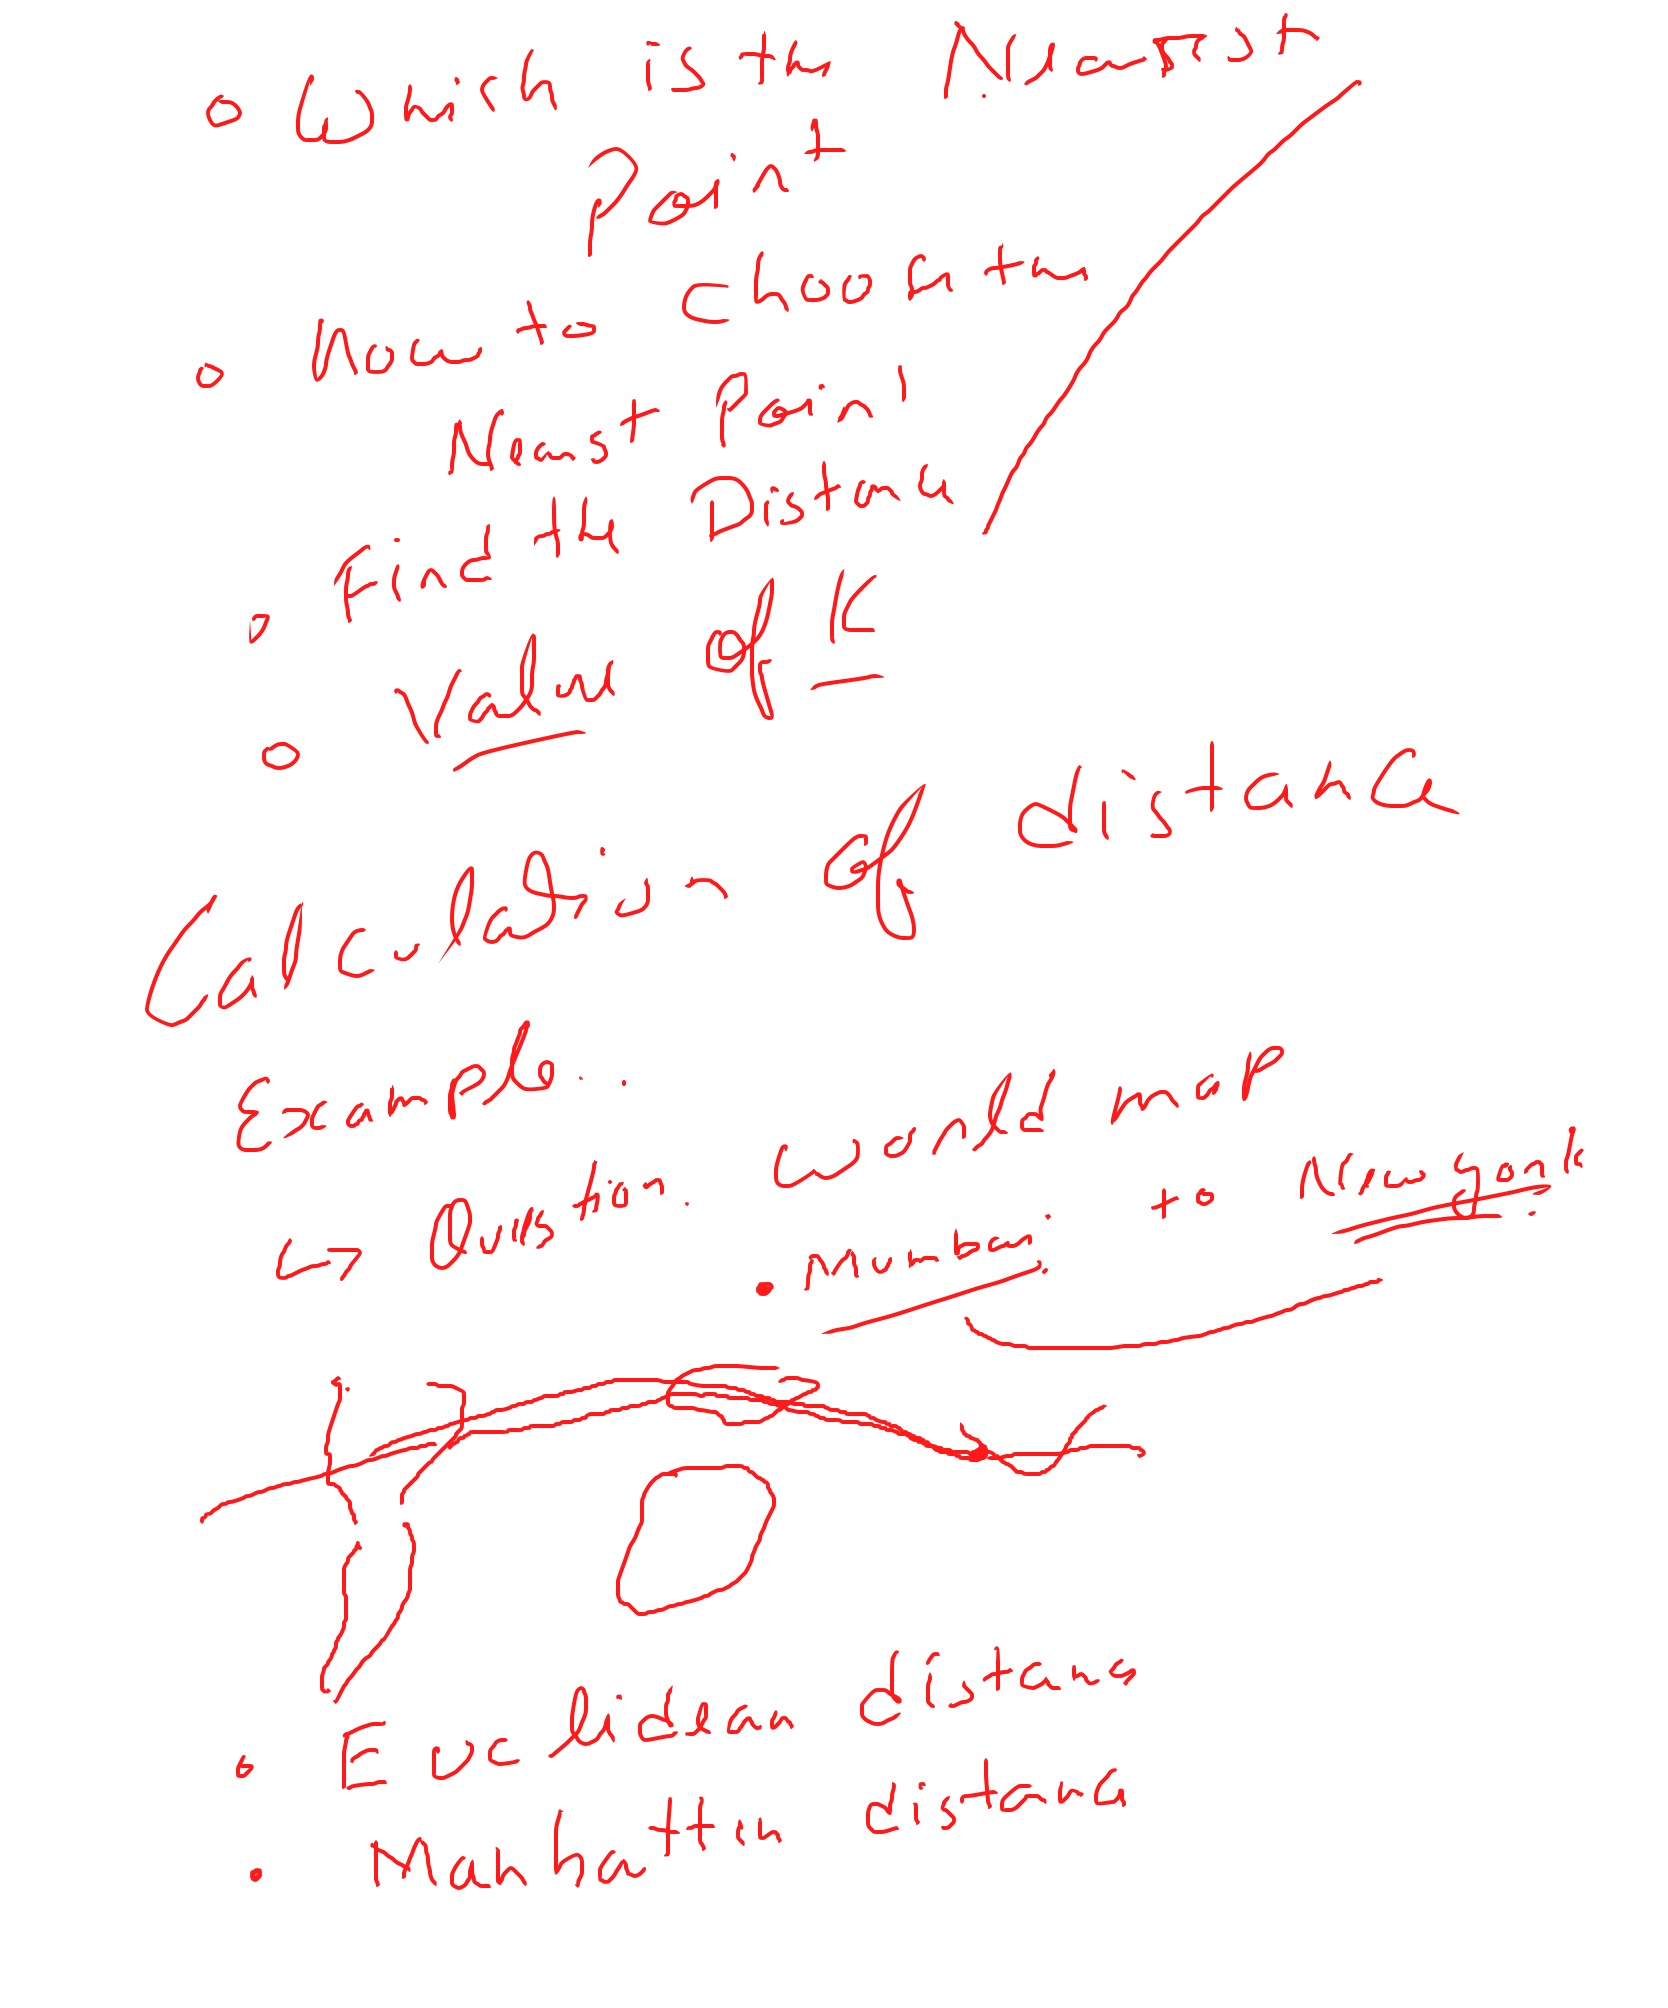 Which is the Nearest
Point
How to choose the
Nearst Point
Find the Distance
Value of K
Calculation of distance
Example..
World map
↳ Question.
• Mumbai to New york
• Euclidean distance
• Manhattin distance